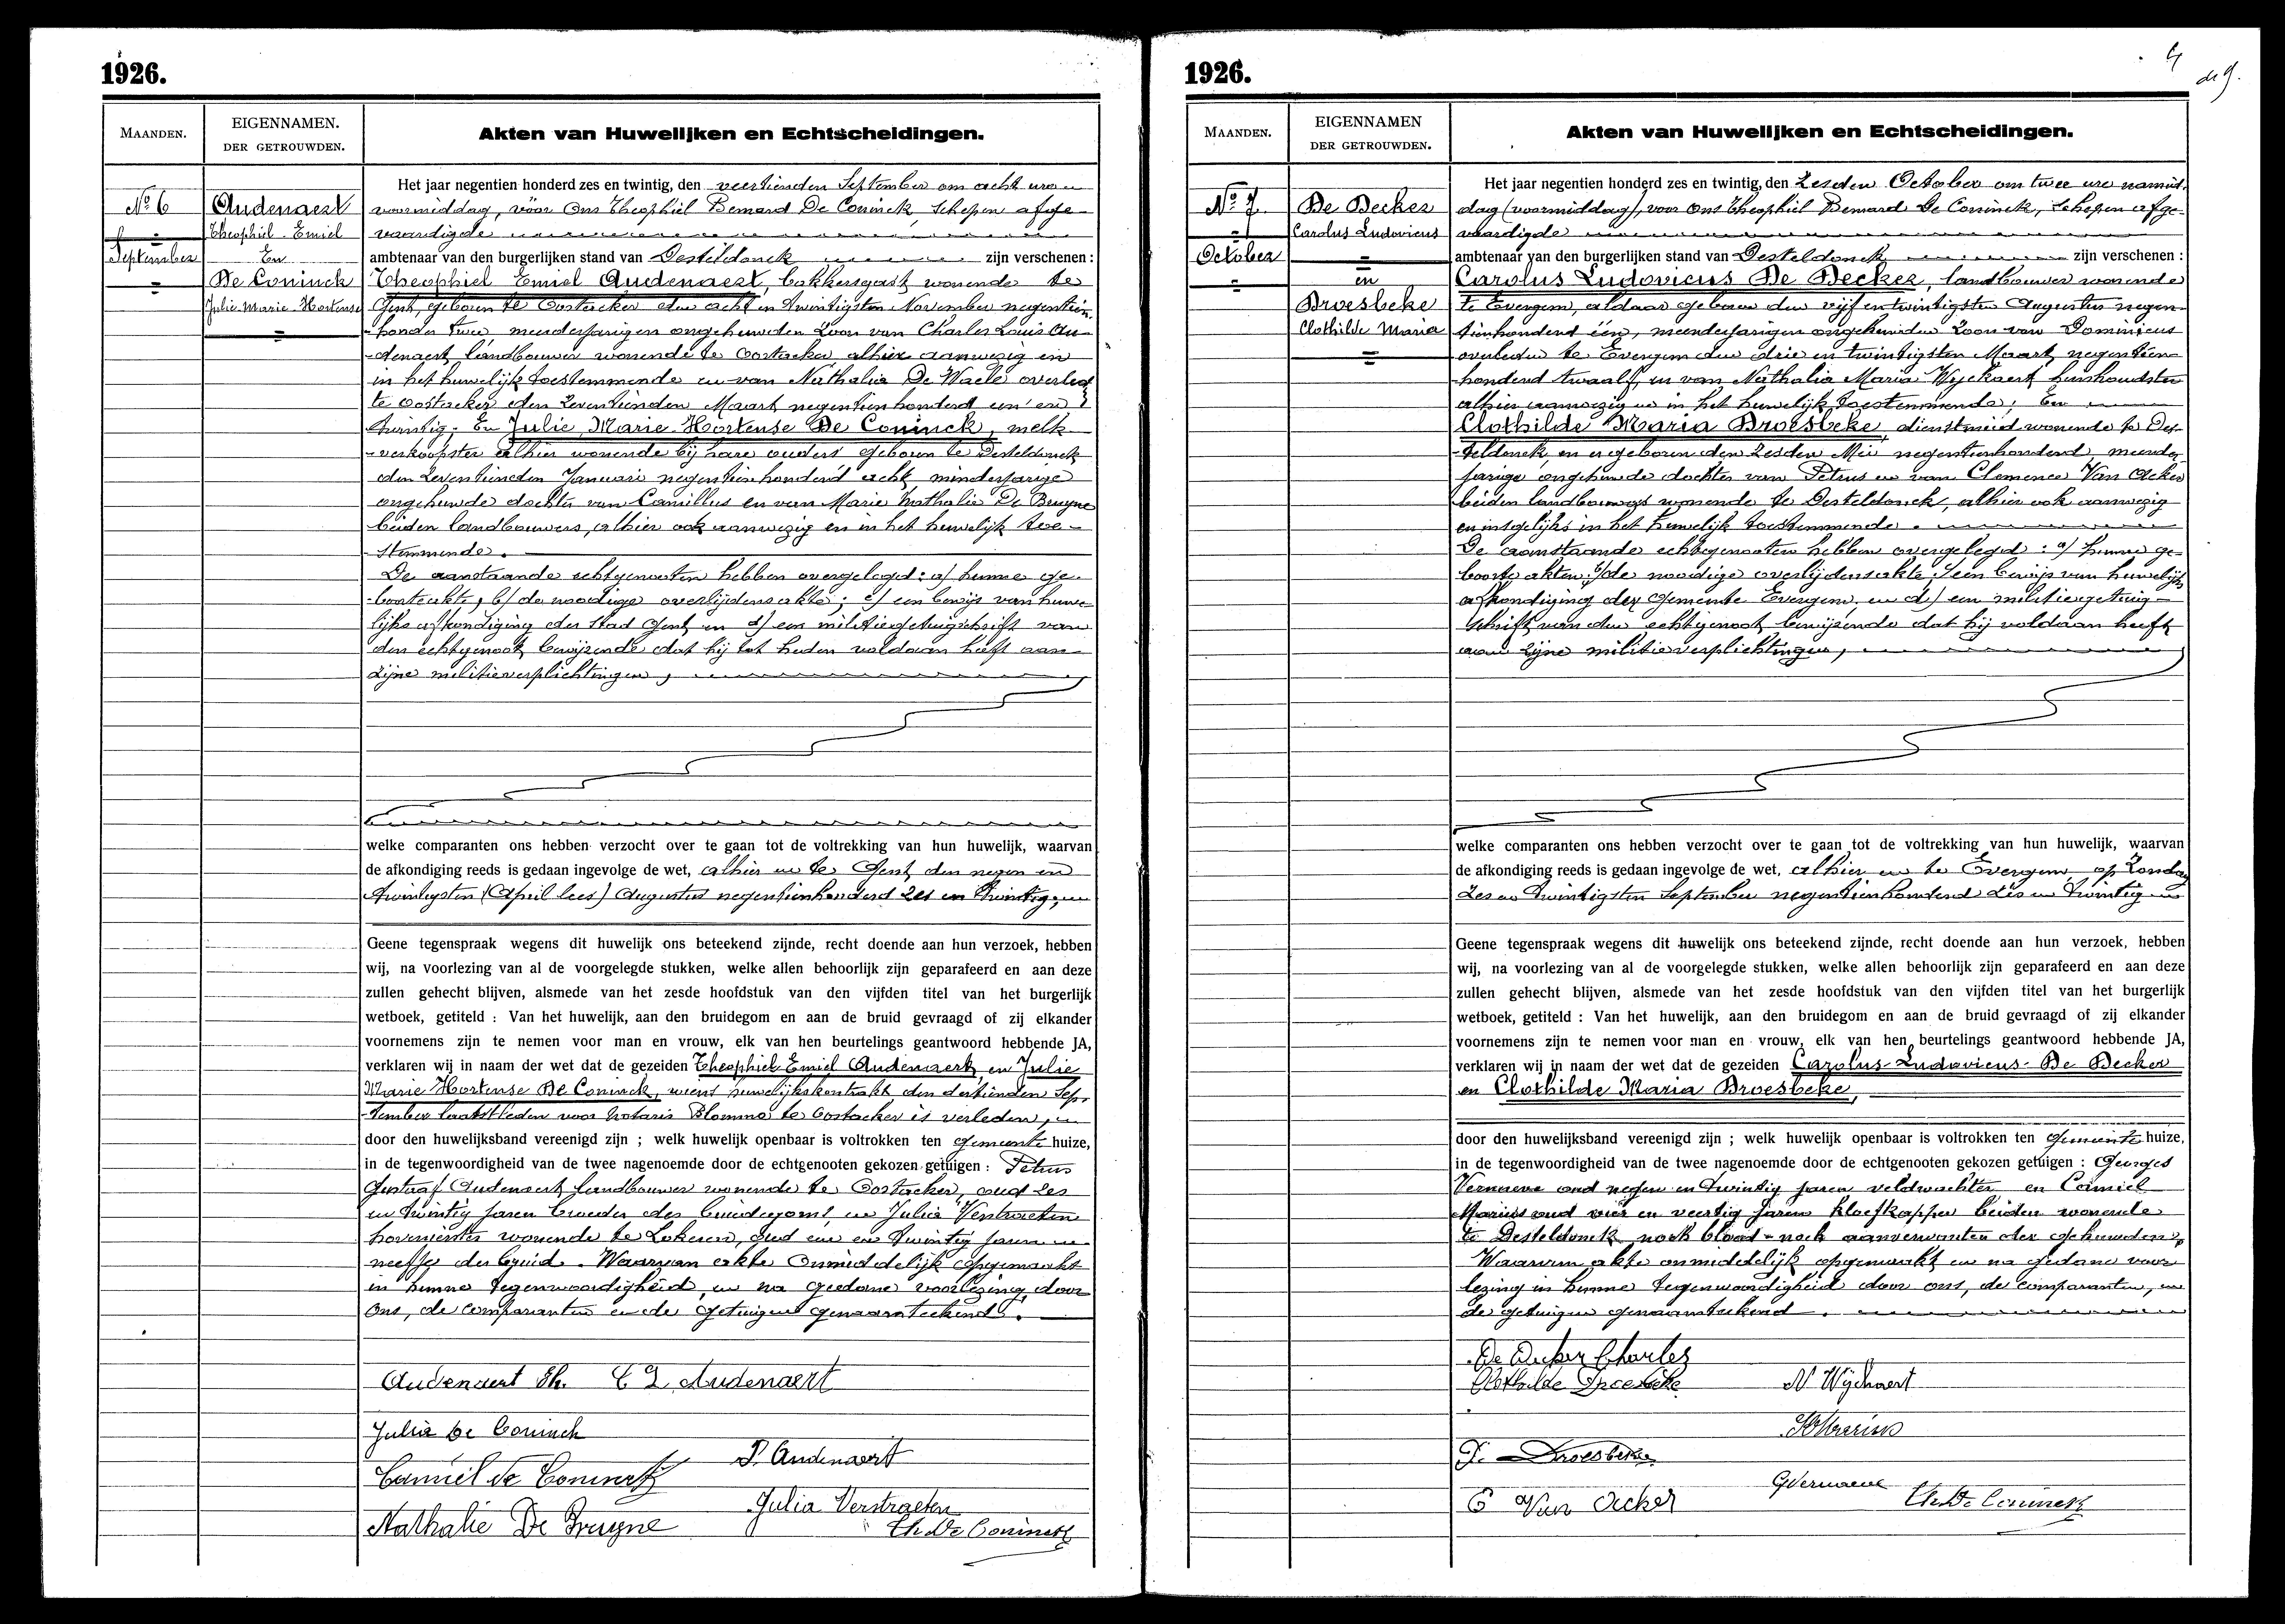 1926.
MAANDEN.
EIGENNAMEN.
DER GETROUWDEN.
Akten van Huwelijken en Echtscheidingen.
No 6
September
Audenaert
Theophiel Emiel
En
De Coninck
Julie Marie Hortense
Het jaar negentien honderd zes en twintig, den veertienden September om acht uren
voormiddag, vóór Ons Theophiel Bernard De Coninck, Schepen afge-
vaardigde
ambtenaar van den burgerlijken stand van Desteldonck zijn verschenen :
Theophiel Emiel Audenaert, bakkersgast wonende te
Gent, geboren te Oostacker den acht en twintigsten November negentien
honder twee, meerderjarigen ongehuwden Zoon van Charles Louis Au-
-denaert, landbouwer wonende te Oostacker alhier aanwezig en
in het huwelijk toestemmende en van Nathalia De Waele overled
te Oostacker den Zeventienden Maart negentien honderd een en
twintig; En Julie Marie Hortense De Coninck, melk-
-verkoopster alhier wonende bij hare ouders geboren te Desteldonck
den Zeventienden Januari negentien honderd acht, minderjarige
ongehuwde dochter van Camillus en van Marie Nathalie De Bruyne
beiden landbouwers, alhier ook aanwezig en in het huwelijk toe-
-stemmende.
De aanstaande echtgenooten hebben overgelegd : a/ hunne ge-
-boorteakte, b/ de noodige overlijdensakte; c/ een bewijs van huwe-
lijks afkondiging der Stad Gent en d/ een militiegetuigschrift van
den echtgenoot bewijzende dat hij tot heden voldaan heeft aan
zijne militieverplichtingen,
welke comparanten ons hebben verzocht over te gaan tot de voltrekking van hun huwelijk, waarvan
de afkondiging reeds is gedaan ingevolge de wet, alhier en te Gent, den negen en
twintigsten (April lees) Augustus negentienhonderd zes en twintig,
Geene tegenspraak wegens dit huwelijk ons beteekend zijnde, recht doende aan hun verzoek, hebben
wij, na voorlezing van al de voorgelegde stukken, welke allen behoorlijk zijn geparafeerd en aan deze
zullen gehecht blijven, alsmede van het zesde hoofdstuk van den vijfden titel van het burgerlijk
wetboek, getiteld : Van het huwelijk, aan den bruidegom en aan de bruid gevraagd of zij elkander
voornemens zijn te nemen voor man en vrouw, elk van hen beurtelings geantwoord hebbende JA,
verklaren wij in naam der wet dat de gezeiden Theophiel Emiel Audenaert en Julie
Marie Hortense De Coninck, wiens huwelijkskontrakt den dertienden Sep-
-tember laatstleden voor Notaris Blomme te Oostacker is verleden,
door den huwelijksband vereenigd zijn ; welk huwelijk openbaar is voltrokken ten gemeente huize,
in de tegenwoordigheid van de twee nagenoemde door de echtgenooten gekozen getuigen : Petrus
Gustaf Audenaert landbouwer wonende te Oostacker, oud zes
en twintig jaren broeder des bruidegoms, en Julia Verstraeten
hovenierster wonende te Lokeren, oud een en twintig jaren
der bruid. Waarvan akte onmiddelijk opgemaakt
in hunne tegenwoordigheid, en na gedane voorlezing door
Ons, de comparanten en de getuigen genaamteekend.
Audenaert Th. C L Audenaert
Julia De Coninck
P. Audenaert
Camiel De Coninck
Julia Verstraeten
Nathalie De Bruyne
Th. De Coninck
1926.
MAANDEN.
EIGENNAMEN
DER GETROUWDEN.
Akten van Huwelijken en Echtscheidingen.
No 7
October
De Decker
Carolus Ludovicus
en
Droesbeke
Clothilde Maria
Het jaar negentien honderd zes en twintig, den Zesden October om twee ure namid-
dag (voormiddag), voor Ons Theophiel Bernard De Coninck, Schepen afge-
vaardigde
ambtenaar van den burgerlijken stand van Desteldonck zijn verschenen :
Carolus Ludovicus De Decker, landbouwer wonende
te Evergem, aldaar geboren den vijf en twintigsten Augustus negen-
tienhonderd één, meerderjarigen ongehuwden Zoon van Dominicus
overleden te Evergem den drie en twintigsten Maart negentien
honderd twaalf en van Nathalia Maria Wyckaert huishoudster
alhier aanwezig en in het huwelijk toestemmende; En
Clothilde Maria Droesbeke, dienstmeid wonende te Des-
-teldonck, en er geboren den zesden Mei negentienhonderd, meerder
jarige ongehuwde dochter van Petrus en van Clemence Van Acker
beiden landbouwers wonende te Desteldonck, alhier ook aanwezig
en insgelijks in het huwelijk toestemmende.
De aanstaande echtgenooten hebben overgelegd : a/ hunne ge-
boorte akten; b/ de noodige overlijdensakte; c/ een bewijs van huwelijks
afkondiging der Gemeente Evergem, en d/ een militiegetuig-
schrift van den echtgenoot bewijzende dat hij voldaan heeft
aan zijne militieverplichtingen,
welke comparanten ons hebben verzocht over te gaan tot de voltrekking van hun huwelijk, waarvan
de afkondiging reeds is gedaan ingevolge de wet, alhier en te Evergem, op Zondag
zes en twintigsten September negentienhonderd zes en twintig
Geene tegenspraak wegens dit huwelijk ons beteekend zijnde, recht doende aan hun verzoek, hebben
wij, na voorlezing van al de voorgelegde stukken, welke allen behoorlijk zijn geparafeerd en aan deze
zullen gehecht blijven, alsmede van het zesde hoofdstuk van den vijfden titel van het burgerlijk
wetboek, getiteld : Van het huwelijk, aan den bruidegom en aan de bruid gevraagd of zij elkander
voornemens zijn te nemen voor man en vrouw, elk van hen beurtelings geantwoord hebbende JA,
verklaren wij in naam der wet dat de gezeiden Carolus Ludovicus De Decker
en Clothilde Maria Droesbeke,
door den huwelijksband vereenigd zijn ; welk huwelijk openbaar is voltrokken ten gemeente huize,
in de tegenwoordigheid van de twee nagenoemde door de echtgenooten gekozen getuigen : Georges
Vernaeve oud negen en twintig jaren veldwachter en Camiel
Mariën oud vier en veertig jaren kloefkapper beiden wonende
te Desteldonck noch bloed- noch aanverwanten der gehuwden,
Waarvan akte onmiddelijk opgemaakt en na gedane voor
lezing in hunne tegenwoordigheid door ons, de comparanten, en
de getuigen genaamteekend.
De Decker Charles
Clothilde Droesbeke
N Wyckaert
P. Droesbeke
GVernaeve
C Van Acker
Th. De Coninck